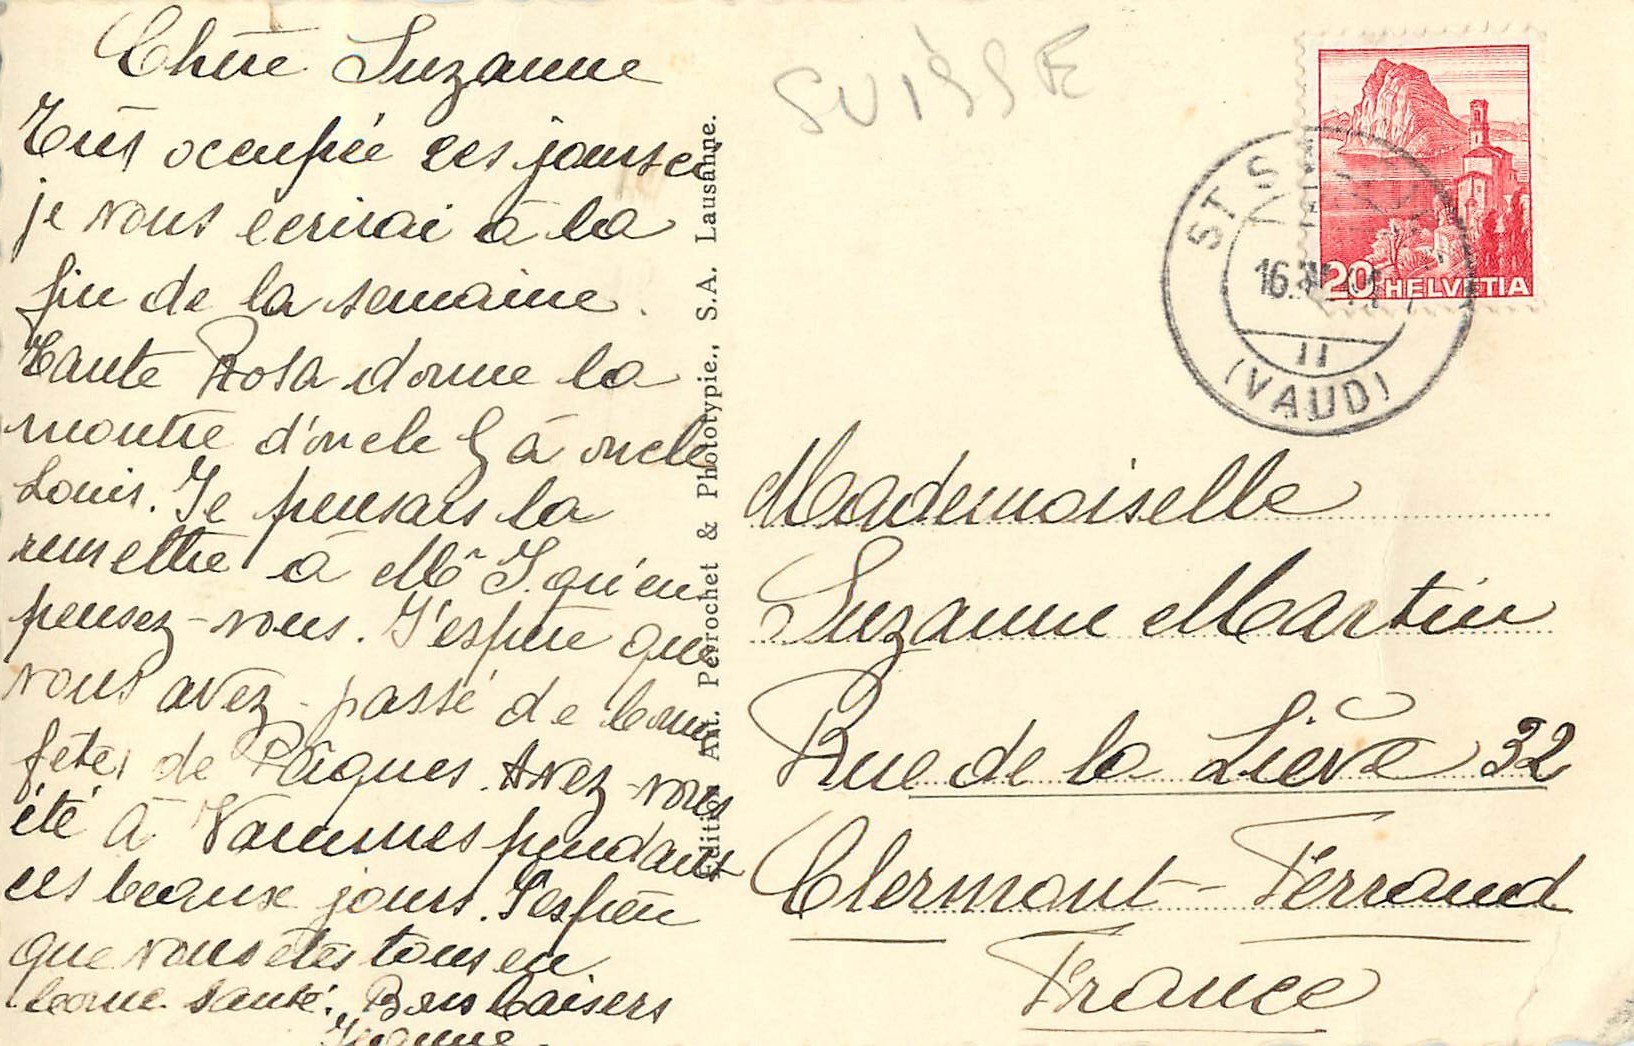 Chère Suzanne
Très occupée ces jours ci
je vous écrirai à la
fin de la semaine.
Tante Rosa donne la
montre d'oncle à oncle
Louis. Je pensais la
remettre à Mr J. qu'en
pensez-vous. J'espère que
vous avez passé de bonnes
fêtes de Pâques. Avez-vous
été à Vannes pendant
ces beaux jours. J'espère
que vous êtes tous en
bonne santé. Bons baisers
Jeanne.
Edition Art. Perrochet & Phototypie., S.A. Lausanne.
SUISSE
20 HELVETIA
ST S
16.
11
(VAUD)
Mademoiselle
Suzanne Martin
Rue de la Lième 32
Clermont-Ferrand
France